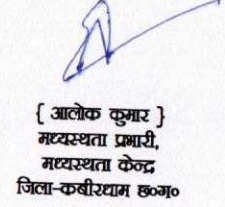 { आलोक कुमार }
मध्यस्थता प्रभारी,
मध्यस्थता केन्द्र
जिला-कबीरधाम छ०ग०